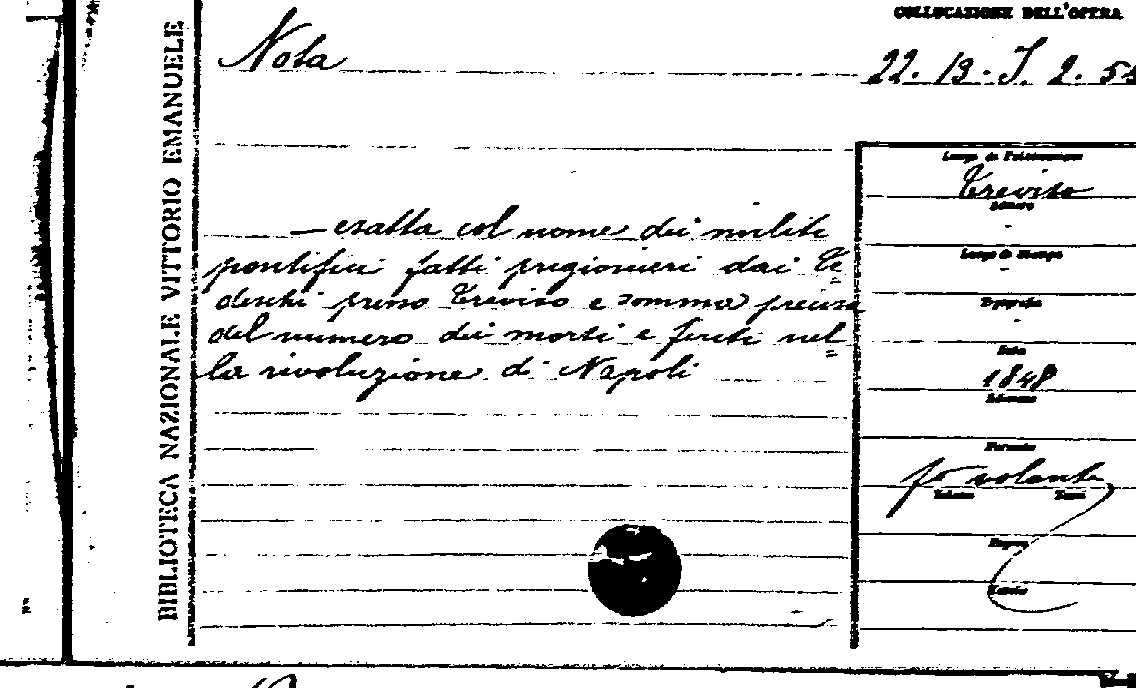 BIBLIOTECA NAZIONALE VITTORIO EMANUELE
Nota
— esatta col nome dei militi
pontifici fatti prigionieri dai Te=
deschi presso Treviso e somma precisa
del numero dei morti e feriti nel=
la rivoluzione di Napoli
COLLOCAZIONE DELL'OPERA
22. 19. I. 2. 5
Luogo di Pubblicazione
Treviso
Editore
Luogo di Stampa
Tipografia
Data
1848
Edizione
Formato
fo volante
Volumi
Tomi
Pagine